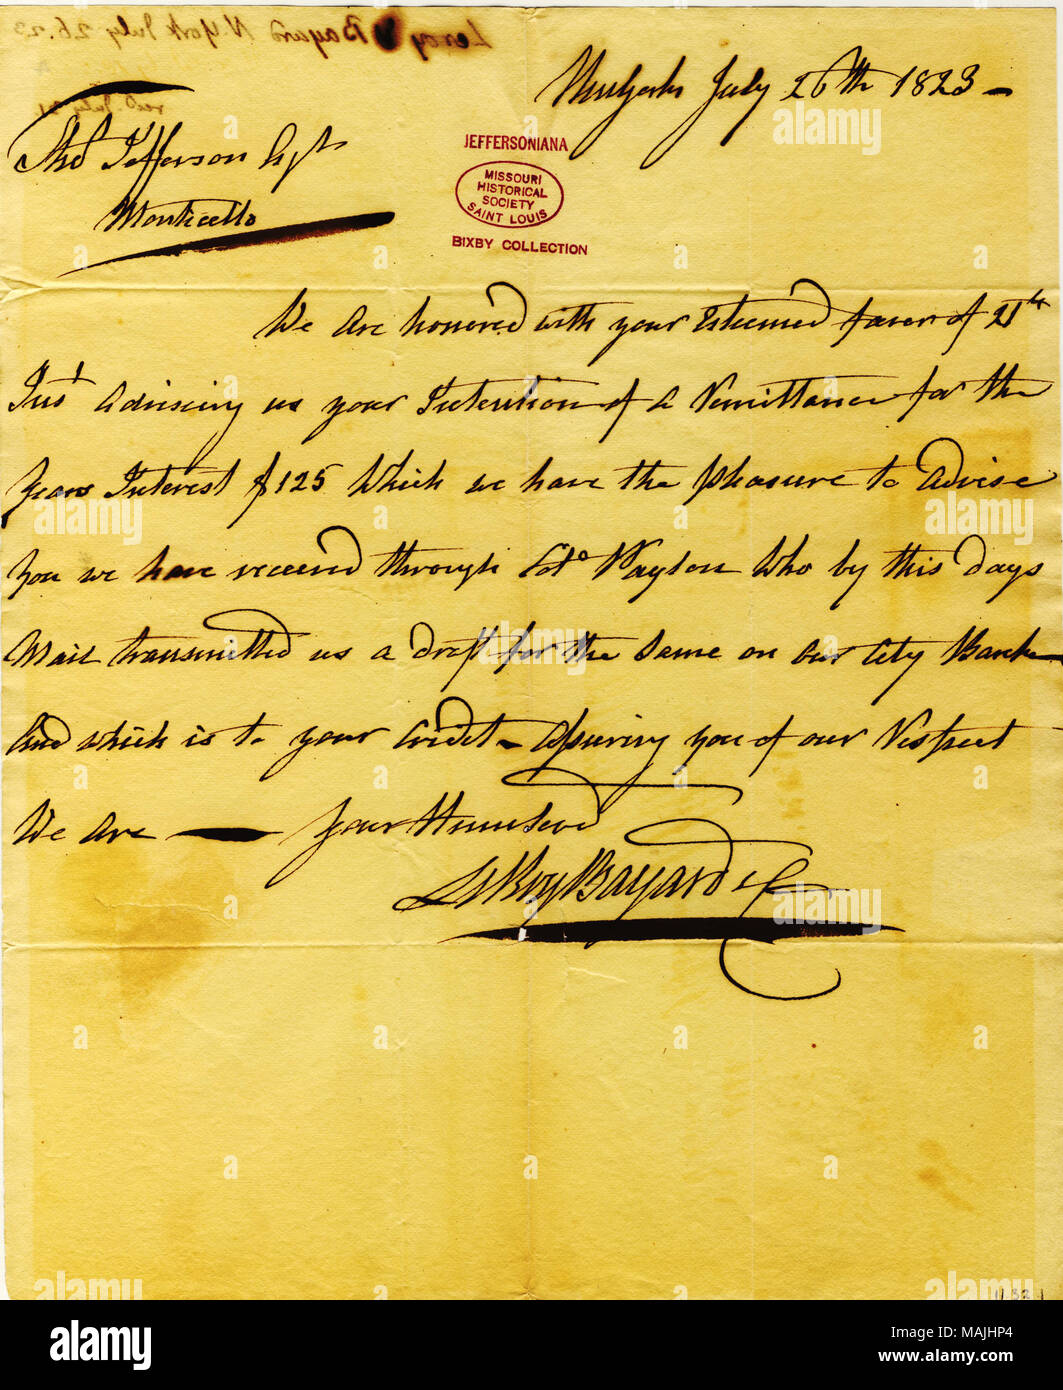 Leroy & Bayard N. York July 26. 23
recd. July 31
NewYork July 26th 1823 -
Thos Jefferson Esqr
Monticello
JEFFERSONIANA
MISSOURI
HISTORICAL
SOCIETY
SAINT LOUIS
BIXBY COLLECTION
We are honored with your Esteemed favor of 21th
Inst advising us your Intention of a Remittance for the
Years Interest $125 Which we have the pleasure to advise
You we have received through Colo Payton Who by this days
Mail transmitted us a draft for the Same on our City Bank
And which is to your Credit - Assuring you of our Respect
We are — Your Hum Servd
LeRoy Bayard & C
1182.1
alamy
Image ID: MAJHP4
www.alamy.com